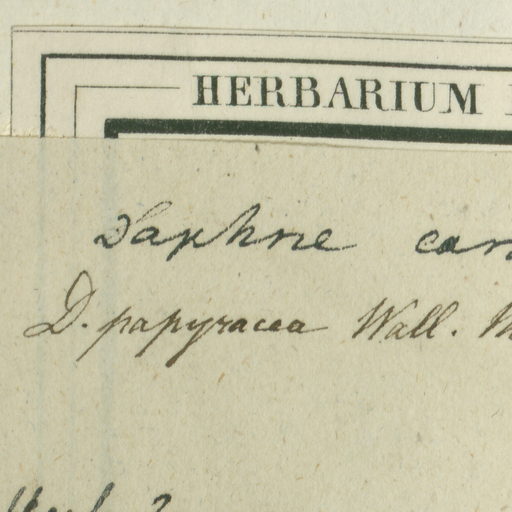 HERBARIUM
Daphne can
D. papyracea Wall.